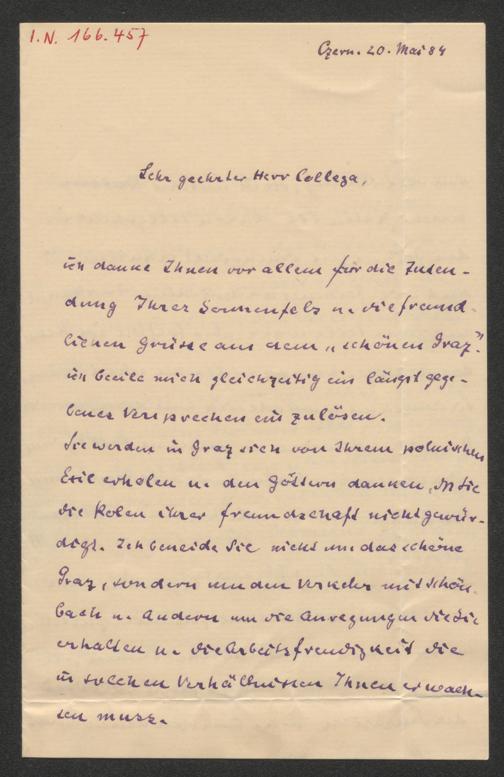 I.N. 166.457
Czern. 20. Mai 84
Sehr geehrter Herr Collega,
ich danke Ihnen vor allem für die Zusen-
dung Ihrer Sonnenfels u. die freund-
lichen Grüsse aus dem „schönen Graz".
ich beeile mich gleichzeitig ein längst gege-
benes Versprechen einzulösen.
Sie werden in Graz sich von Ihrem polnischen
Exil erholen u. den Göttern danken, dass Sie
die Polen ihrer freundschaft nicht gewür-
digt. Ich beneide Sie nicht um das schöne
Graz, sondern um den Verkehr mit Schön-
bach u. Andern um die Anregungen die Sie
erhalten u. die Arbeitsfreudigkeit die
in solchen Verhältnissen Ihnen erwach-
sen muss.